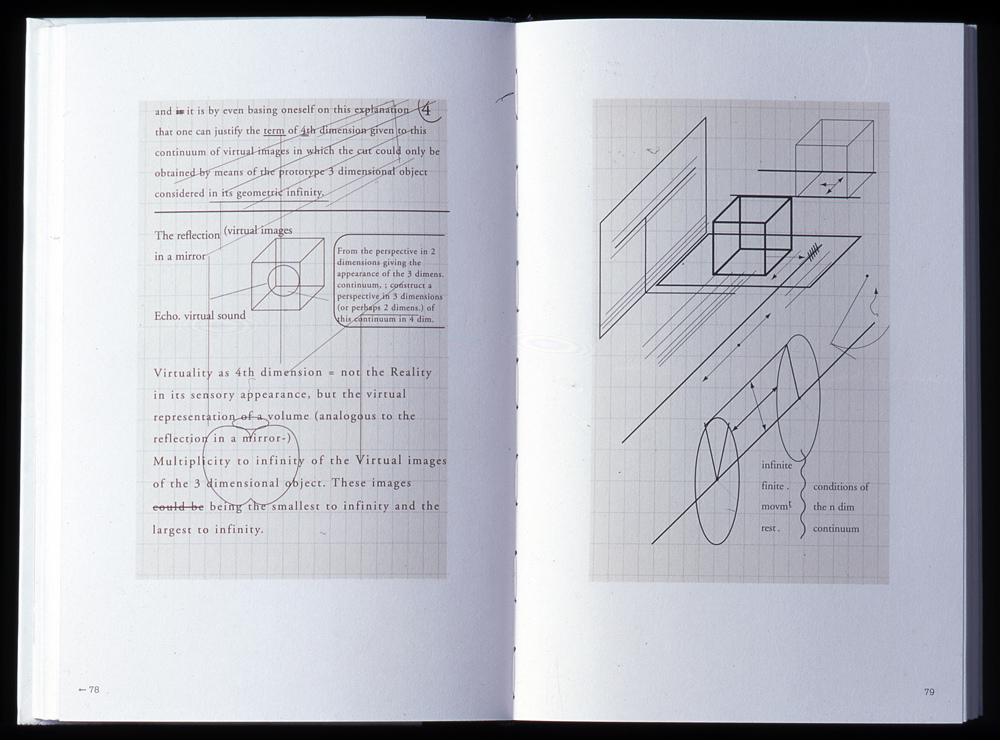 and is it is by even basing oneself on this explanation 4
that one can justify the term of 4th dimension given to this
continuum of virtual images in which the cut could only be
obtained by means of the prototype 3 dimensional object
considered in its geometric infinity.
The reflection (virtual images
in a mirror
From the perspective in 2
dimensions giving the
appearance of the 3 dimens.
continuum, ; construct a
perspective in 3 dimensions
(or perhaps 2 dimens.) of
this continuum in 4 dim.
Echo. virtual sound
Virtuality as 4th dimension = not the Reality
in its sensory appearance, but the virtual
representation of a volume (analogous to the
reflection in a mirror-)
Multiplicity to infinity of the Virtual images
of the 3 dimensional object. These images
could be being the smallest to infinity and the
largest to infinity.
←78
infinite
finite . conditions of
movmt the n dim
rest . continuum
79